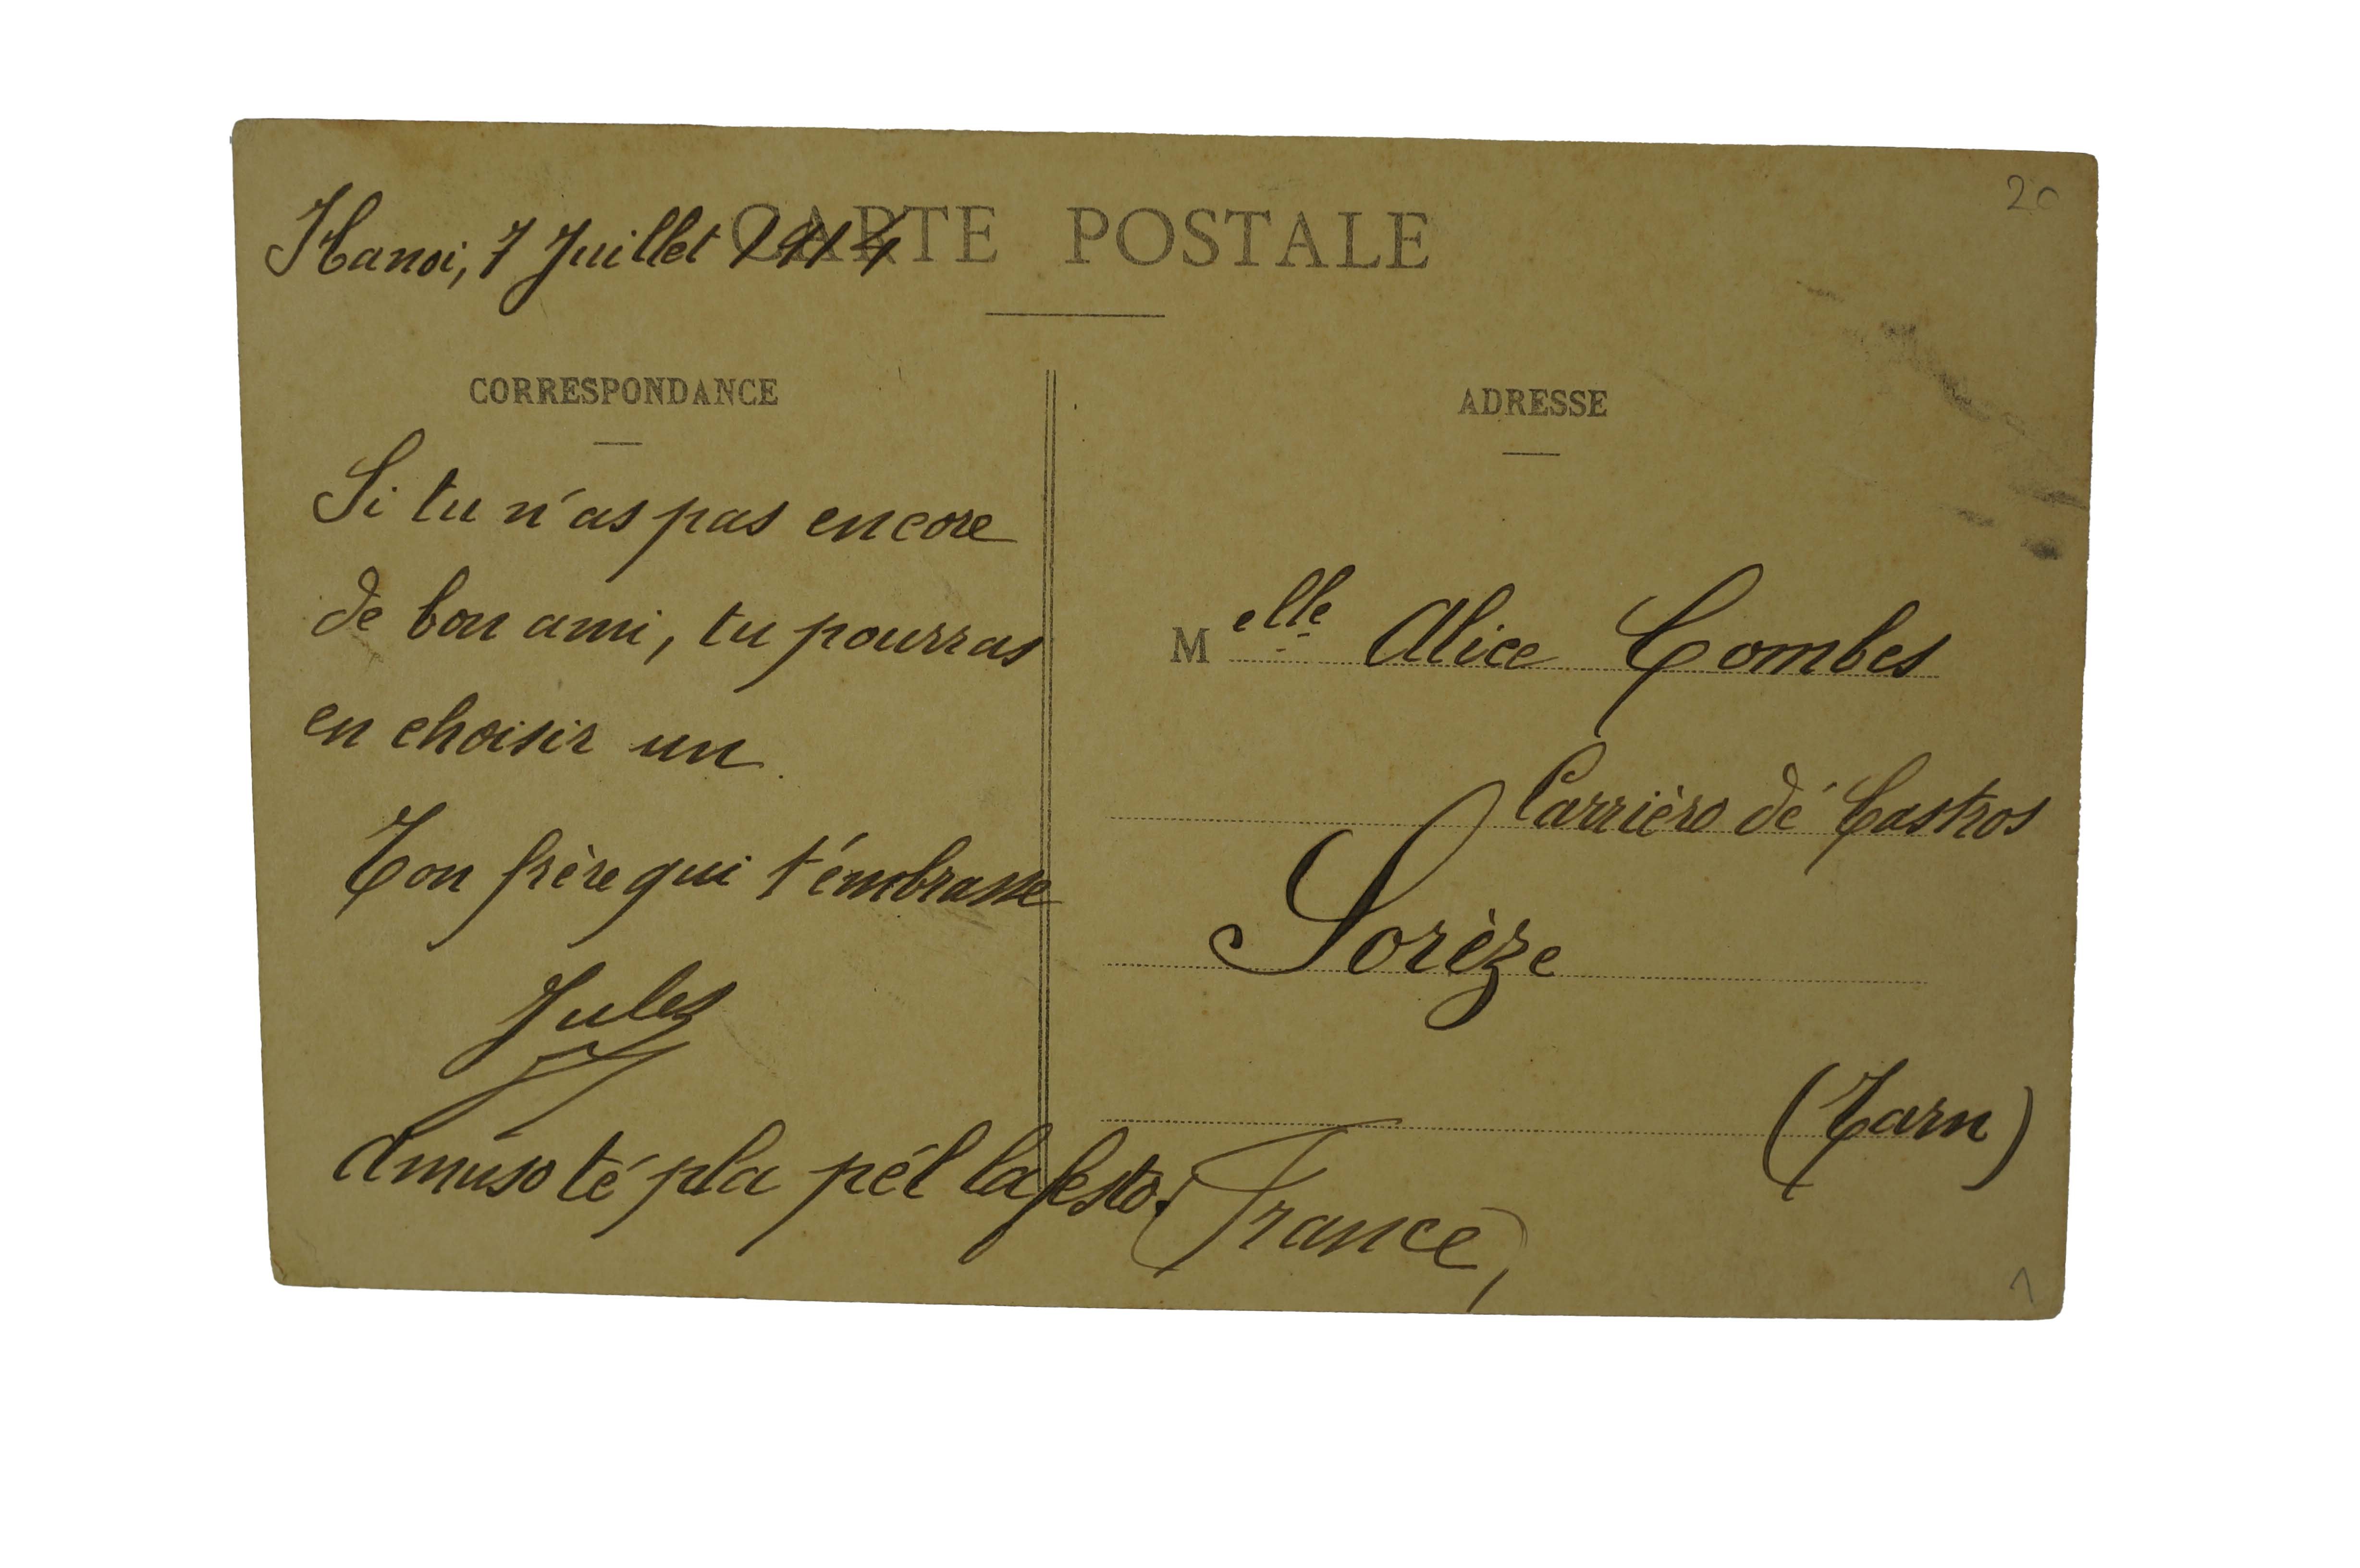 20
CARTE POSTALE
Hanoi, 7 Juillet 1914
CORRESPONDANCE
Si tu n'as pas encore
de bon ami, tu pourras
en choisir un.
Ton frère qui t'émbrasse
Jules
Amuso té pla pél la festo.
ADRESSE
Melle Alice Combes
Carrièro dé Castros
Sorèze
(Tarn)
(France)
1